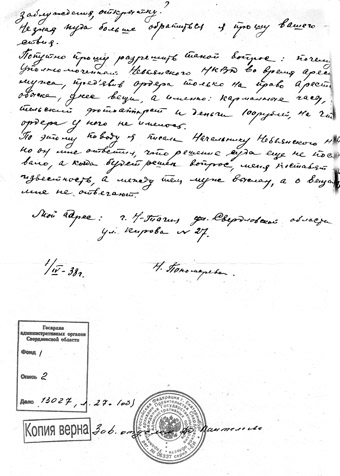 заблуждения, открытку?
Не зная куда больше обратиться я прошу вашего
ствия.
Попутно прошу разрешить такой вопрос: почему
уполномоченный Невьянского НКВД во время арес
мужа, предъявив ордера только на право арест
обыска, две вещи, а именно: карманные часы,
тельский фотоаппарат и деньги 100 рублей, на что
ордера у него не имелось.
По этому поводу я писала Начальнику Невьянского Н
но он мне ответил, что решение суда еще не пос
вало, а когда будет решен вопрос, меня поставят
известность, а между тем муж выслан, а о вещах
мне не отвечают.
Мой адрес: г. Н-Тагил Свердловской области
ул. Кирова N 27.
1/IV-38г. Н. Пономарева.
Госархив
административных органов
Свердловской области
Фонд 1
Опись 2
Дело 13027, л. 27 (об)
Копия верна Зав. отделом